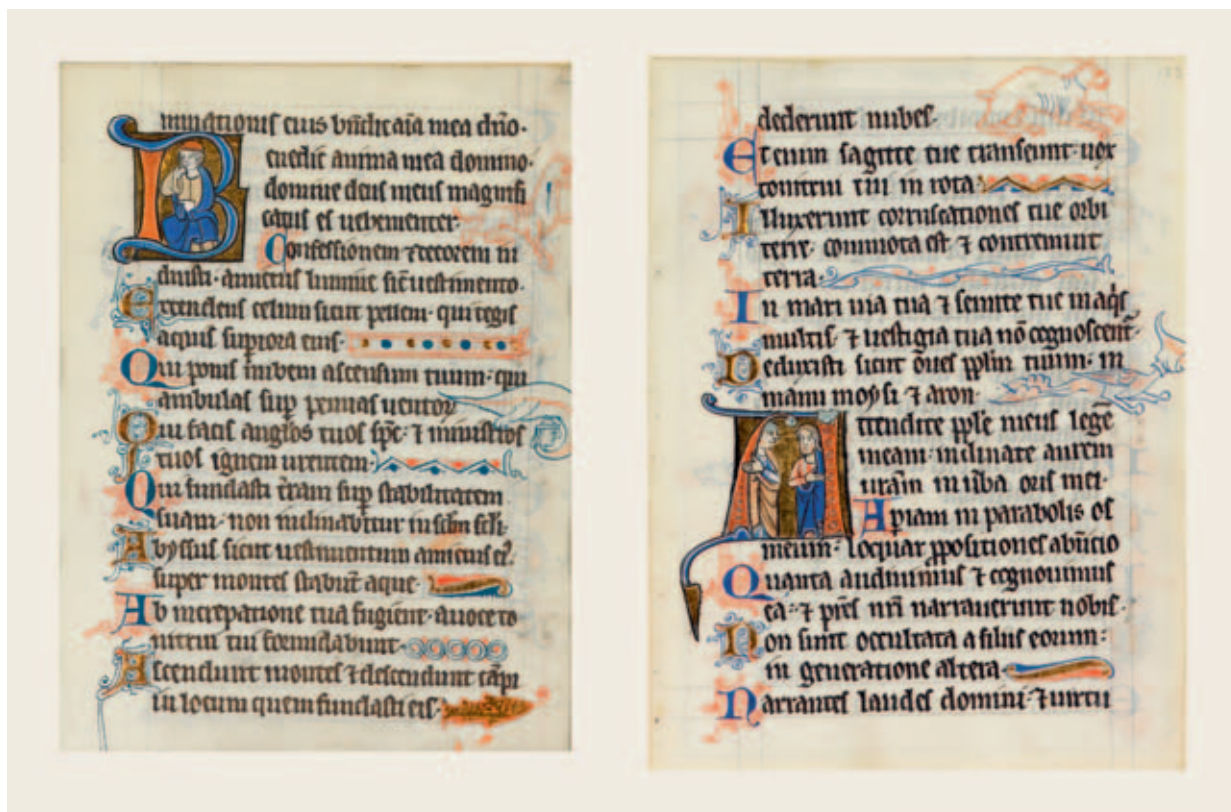 minationis eius bn̄dic aīa mea dn̄o·
Benedic anima mea domino·
domine deus meus magnifi
catus es uehementer·
Confessionem ⁊ decorem in
duisti· amictus lumine sic̄ uestimento·
Extendens celum sicut pellem· qui tegis
aquis supiora eius·
Qui ponis nubem ascensum tuum· qui
ambulas sup pennas uentoꝝ
Qui facis anglos tuos sp̄c· ⁊ ministros
tuos ignem urentem·
Qui fundasti t̄ram sup stabilitatem
suam· non inclinabitur in sc̄lm sc̄li·
Abyssus sicut uestimentum amictus ei᾽·
super montes stabūt aque·
Ab increpatione tua fugient· a uoce to
nitrui tui formidabunt·
Ascendunt montes ⁊ descendunt cāpi
in locum quem fundasti eis·
dederunt nubes·
Etenim sagitte tue transeunt· uox
tonitrui tui in rota·
Illuxerunt corruscationes tue orbi
terre· commota est ⁊ contremuit
terra·
In mari uia tua ⁊ semite tue in aqis
multis· ⁊ uestigia tua nō cognoscent᷑·
Deduxisti sicut oues pplm tuum· in
manu moysi ⁊ aron·
Attendite pple meus legē
meam· inclinate aurem
ur̄am in ūba oris mei·
Apiam in parabolis os
meum· loquar ppositiones ab inicio
Quanta audiuimus ⁊ cognouimus
ea· ⁊ pr̄es nr̄i narrauerunt nobis·
Non sunt occultata a filiis eorum·
in generatione altera·
Narrantes laudes domini· ⁊ uirtu